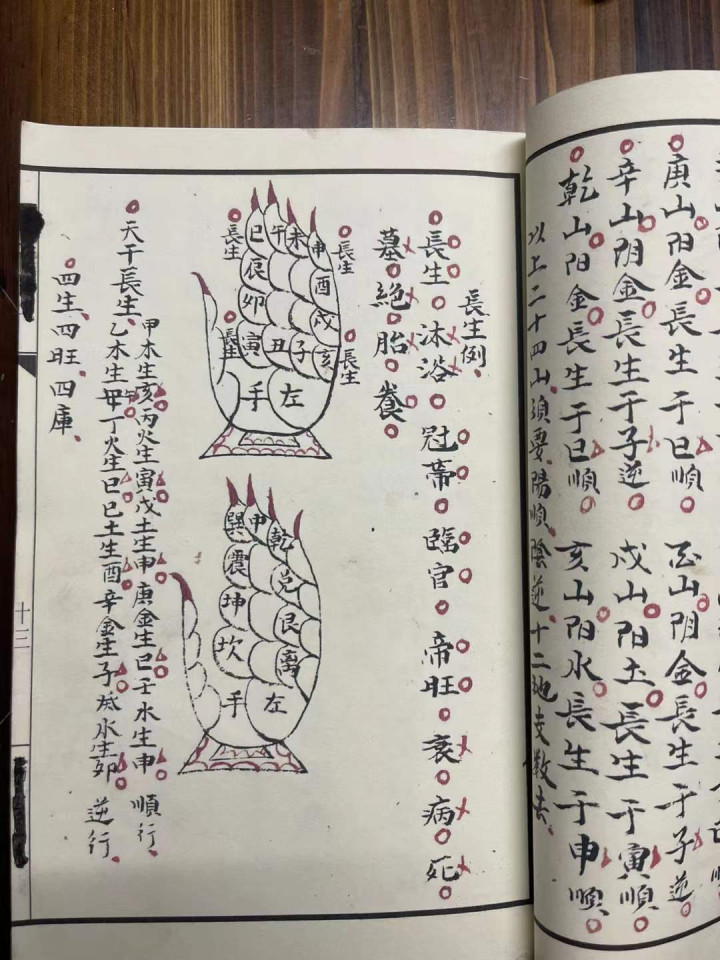 庚山阳金長生于巳順 酉山阴金長生于子逆
辛山阴金長生于子逆 戌山阳土長生于寅順
乾山阳金長生于巳順 亥山阳水長生于申順
以上二十四山須要陽順陰逆十二地支数去
長生例
長生 沐浴 冠帶 臨官 帝旺 衰 病 死
墓 絶 胎 養
長生
長生
長生
長生
巳午未申
辰酉
卯戌
寅丑子亥
左手
巽申乾
震兑
坤艮
坎離
左手
天干長生
甲木生亥丙火生寅戊土生申庚金生巳壬水生申 順行
乙木生午丁火生巳巳土生酉辛金生子癸水生卯 逆行
四生四旺四庫
十三